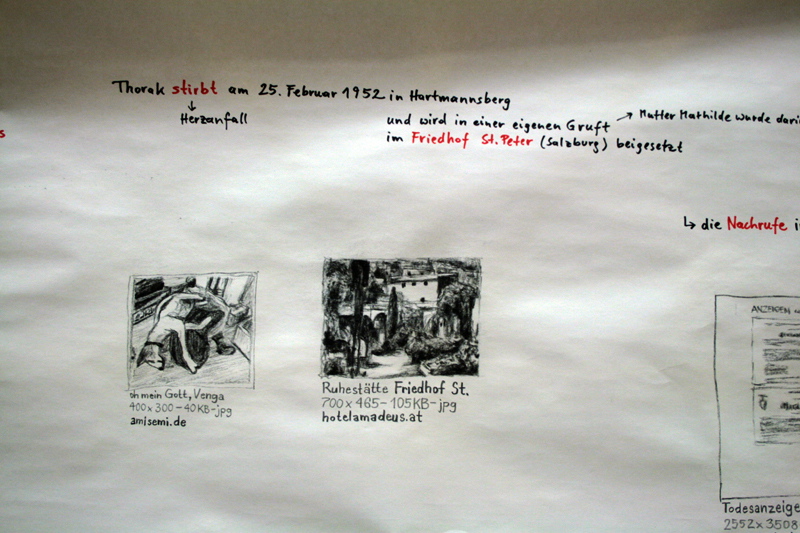 Thorak stirbt am 25. Februar 1952 in Hartmannsberg
↓
Herzanfall
und wird in einer eigenen Gruft → Mutter Mathilde wurde
im Friedhof St. Peter (Salzburg) beigesetzt
s
↳ die Nachrufe
oh mein Gott, Venga
400 x 300 – 40 KB – jpg
amisemi.de
Ruhestätte Friedhof St.
700 x 465 – 105 KB – jpg
hotelamadeus.at
ANZEIGEN
Todesanzeige
2552 x 3508